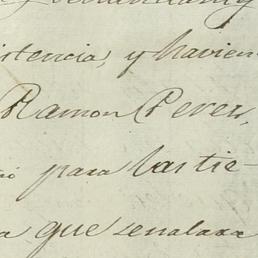 istencia, y havien
Ramon Perez,
ó para las tie-
a que senalara